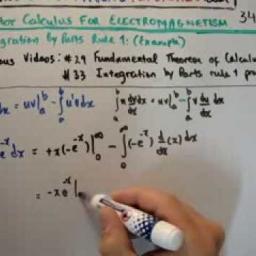 tor Calculus For Electromagnetism 34
egration by Parts Rule 1: (Example)
ous Videos: #29 Fundamental Theorem of Calcul
#33 Integration by Parts rule 1 pro
dx = uv|ₐᵇ - ∫ₐᵇ u'v dx ∫ₐᵇ u dv/dx dx = uv|ₐᵇ - ∫ₐᵇ v du/dx dx
e⁻ˣ dx = +x(-e⁻ˣ)|₀^∞ - ∫₀^∞ (-e⁻ˣ) d/dx (x) dx
= -xe⁻ˣ|